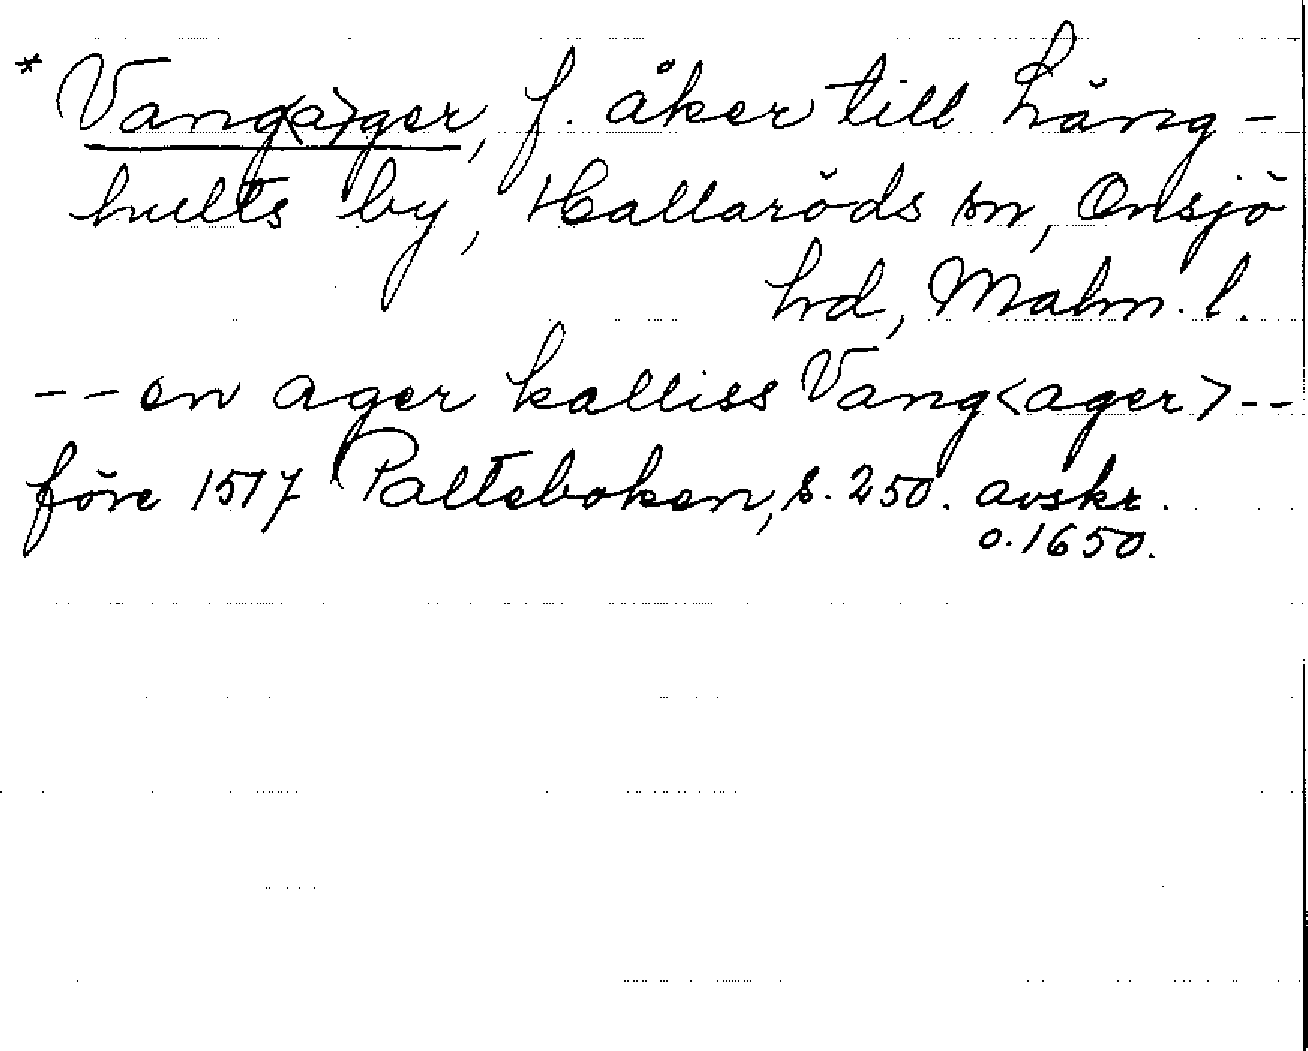 * Vang<a>ger, f. åker till Lång-
hults by, Hallaröds sn, Onsjö
hd, Malm. l.
-- en ager kalliss Vang<ager> --
före 1517 Palteboken, s. 250. avskr.
o. 1650.